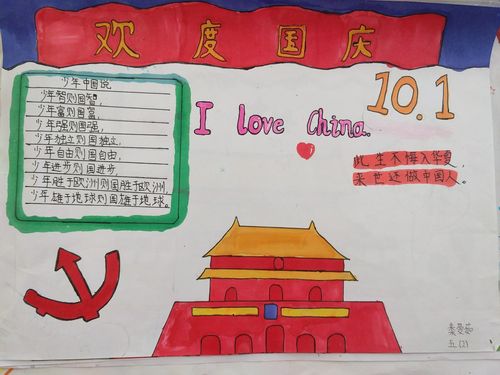 欢度国庆
10.1
I love China.
少年中国说
少年智则国智，
少年富则国富，
少年强则国强，
少年独立则国独立，
少年自由则国自由，
少年进步则国进步，
少年胜于欧洲则国胜于欧洲，
少年雄于地球则国雄于地球。
此生不悔入华夏，
来世还做中国人。
五(2)